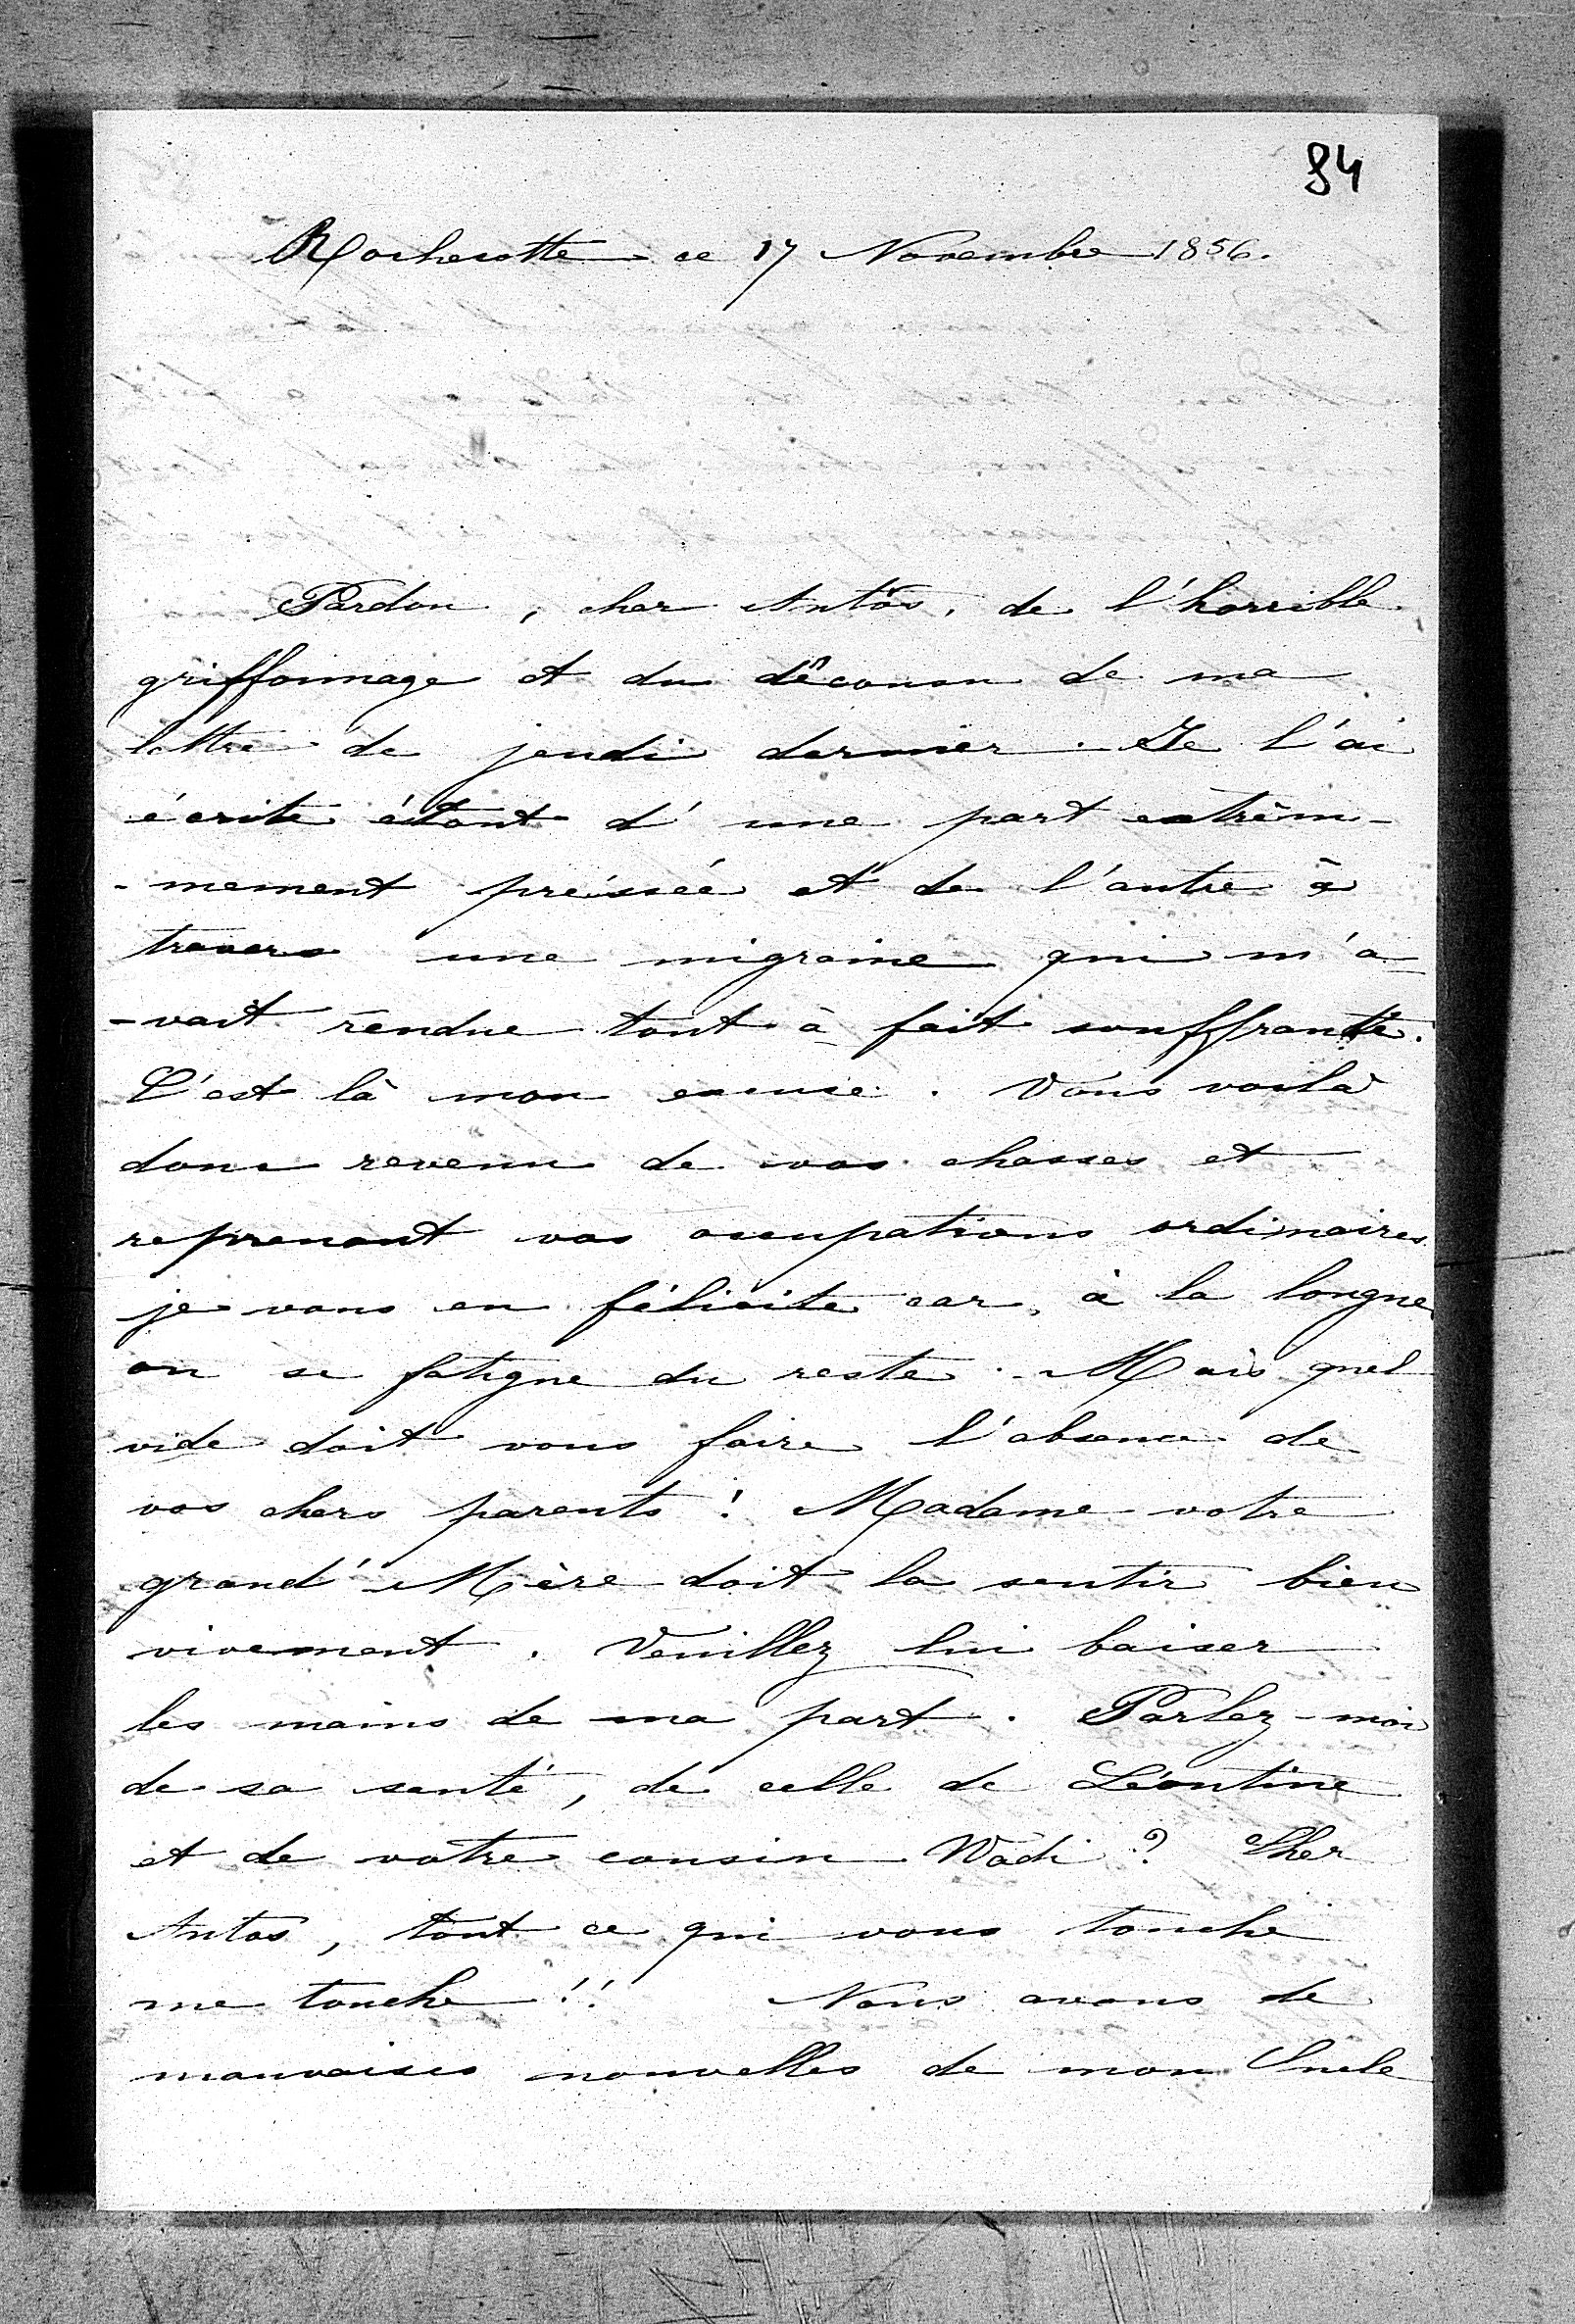 84
Rochecotte ce 17 Novembre 1856.
Pardon, cher Antos, de l'horrible
griffonnage et du décousu de ma
lettre de jeudi dernier. Je l'ai
écrite étant d'une part extrêm-
-mement pressée et de l'autre à
travers une migraine qui m'a-
-vait rendue tout à fait souffrante.
C'est là mon excuse. Vous voilà
donc revenu de vos chasses et
reprenant vos occupations ordinaires
je vous en félicite car, à la longue,
on se fatigue du reste. Mais quel
vide doit vous faire l'absence de
vos chers parents! Madame votre
grand'Mère doit la sentir bien
vivement. Veuillez lui baiser
les mains de ma part. Parlez-moi
de sa santé, de celle de Léontine
et de votre cousin Wadi? Cher
Antos, tout ce qui vous touche
me touche!! Nous avons de
mauvaises nouvelles de mon Oncle